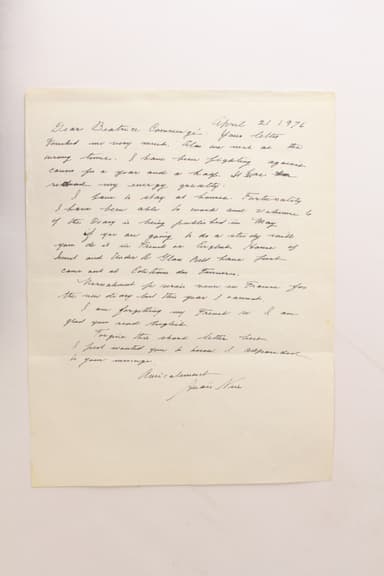 April 21 1976
Dear Beatrice Commengé Your letter
touched me very much. Alas we met at the
wrong time. I have been fighting against
cancer for a year and a half. It has
my energy greatly.
I have to stay at home. Fortunately
I have been able to work and volume 6
of the Diary is being published in May
If you are going to do a study will
you do it in French or English. House of
Incest and Under a Glass Bell have just
came out at Editions des Femmes.
Normalement je serais venue in France for
the new diary but this year I cannot.
I am forgetting my French so I am
glad you read English.
Forgive this short letter but
I just wanted you to know I responded
to your message
Amicalement
Anais Nin